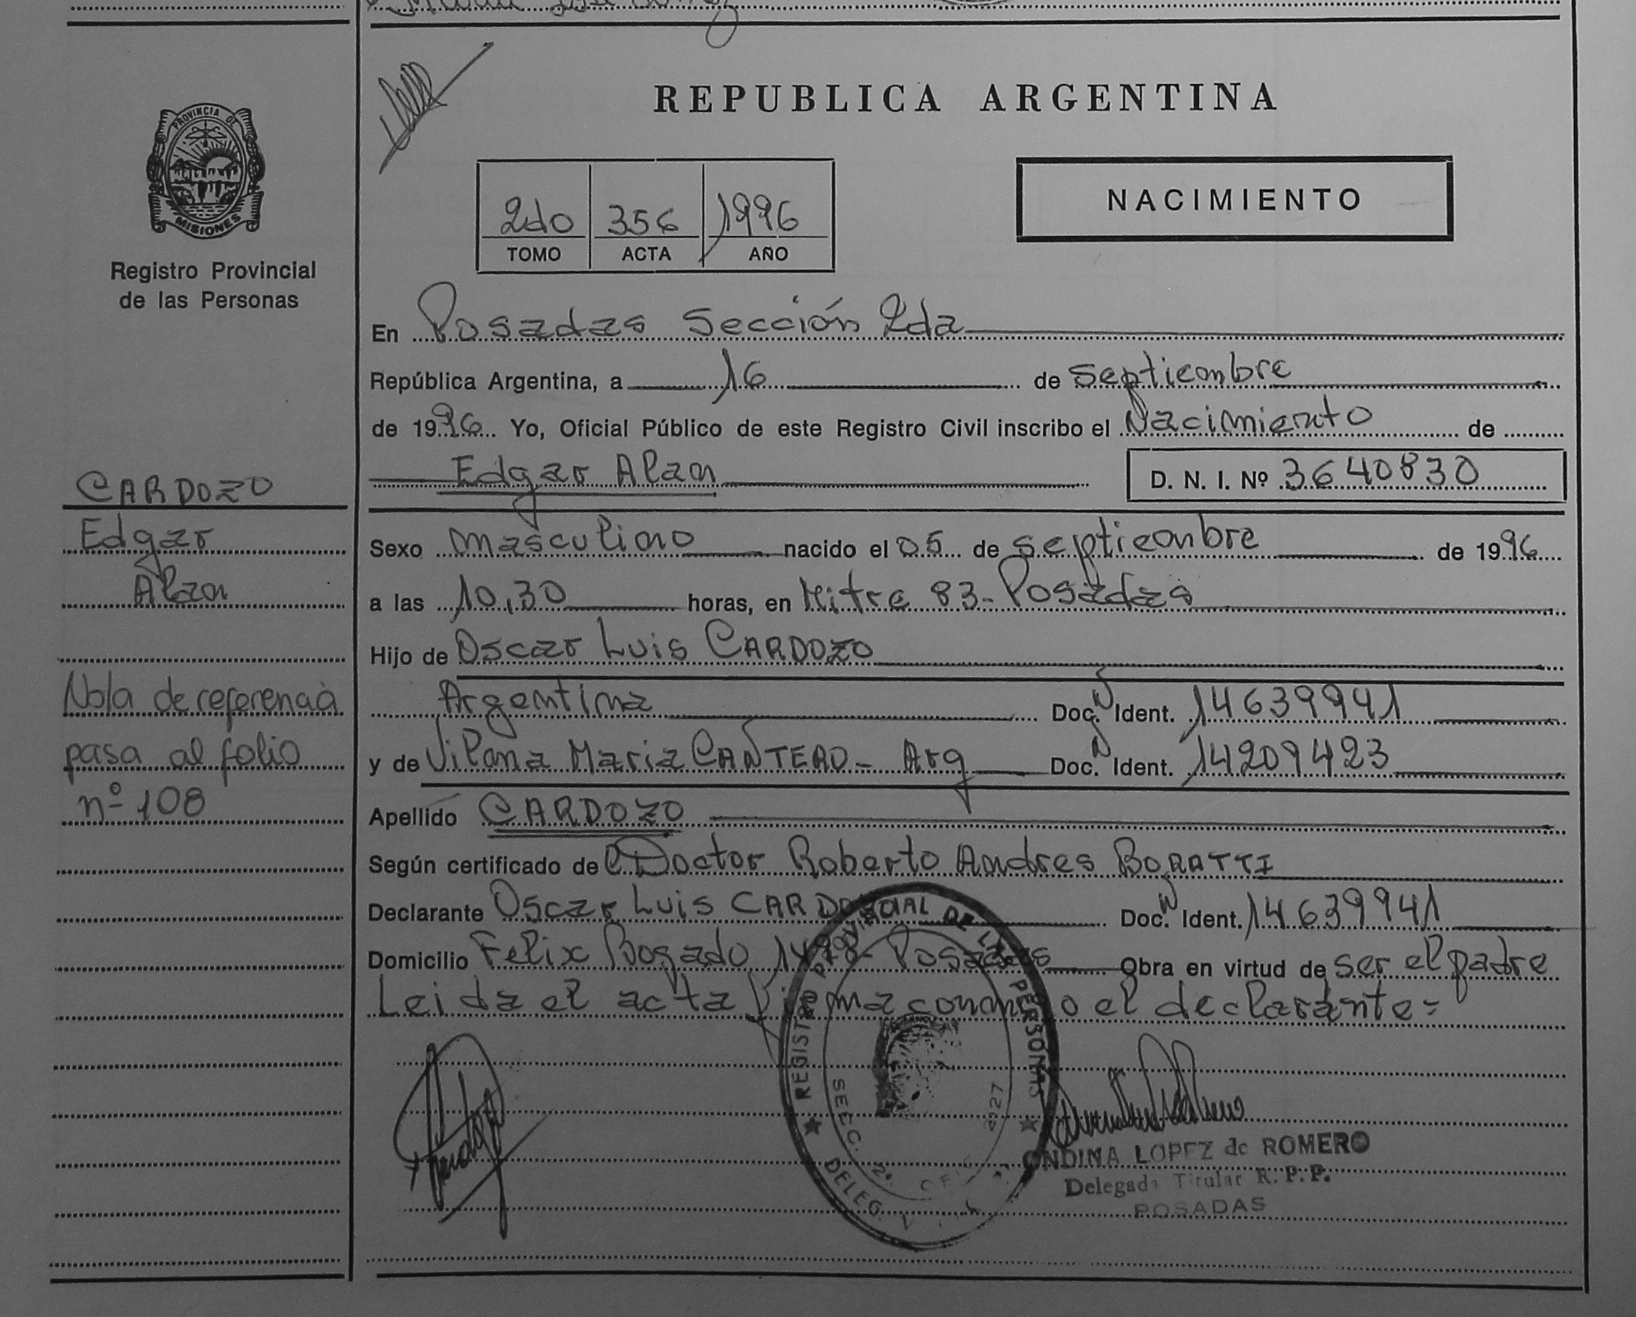 REPUBLICA ARGENTINA
PROVINCIA DE
MISIONES
Registro Provincial
de las Personas
2do 356 1996
TOMO ACTA AÑO
NACIMIENTO
En Posadas Sección 2da
República Argentina, a 16 de septiembre
de 1996 Yo, Oficial Público de este Registro Civil inscribo el Nacimiento de
Edgar Alan D. N. I. Nº 3640830
CARDOZO
Edgar
Alan
Sexo masculino nacido el 05 de septiembre de 1996
a las 10,30 horas, en Mitre 83- Posadas
Hijo de Oscar Luis CARDOZO
Nota de referencia
pasa al folio
nº 108
Argentina Doc. N Ident. 14639941
y de Maria - Arg Doc. N Ident. 14209423
Apellido CARDOZO
Según certificado de Doctor Roberto Andres BORATTI
Declarante Oscar Luis CARDOZO Doc. N Ident. 14639941
Domicilio Felix Bogado - Posadas Obra en virtud de ser el padre
Leida el acta firma conmigo el declarante=
REGISTRO PROVINCIAL DE LAS PERSONAS
SECC. 2ª
DELEG.
ONDINA LOPEZ de ROMERO
Delegada Titular R. P. P.
POSADAS